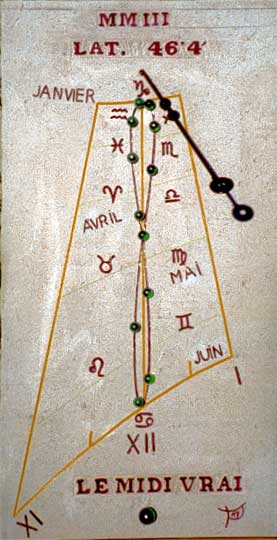 MMIII
LAT. 46°4'
♑
JANVIER
♒ ♐
♓ ♏
♈ ♎
AVRIL
♉ ♍
MAI
♊
♌
JUIN
I
♋
XII
XI
LE MIDI VRAI